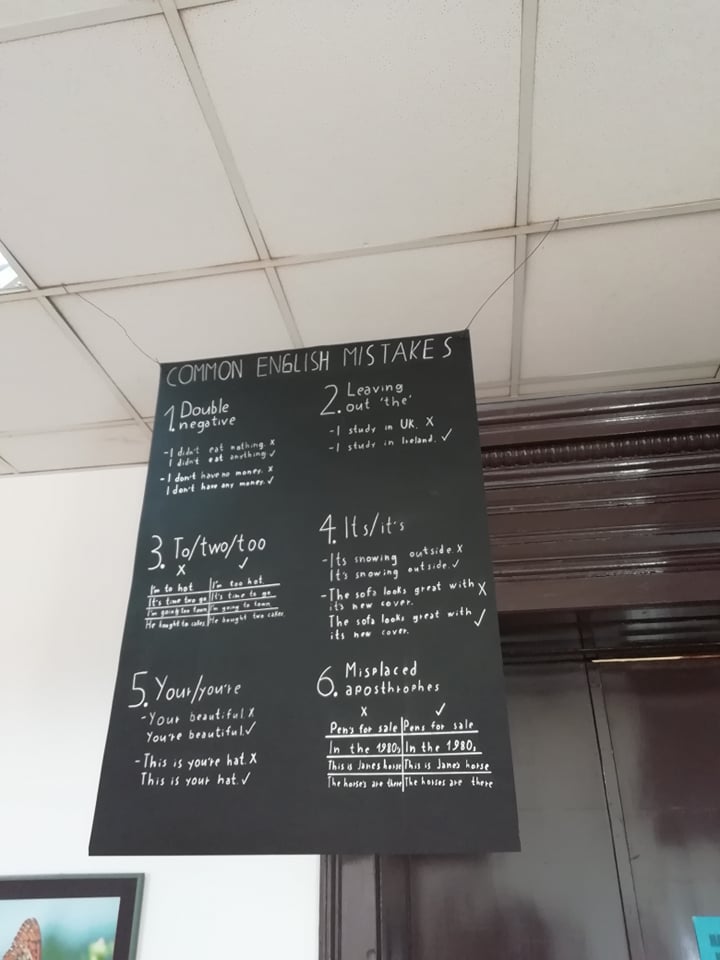 COMMON ENGLISH MISTAKES
1. Double
negative
-I didn't eat nothing. x
I didn't eat anything ✓
-I don't have no money. x
I don't have any money. ✓
2. Leaving
out 'the'
-I study in UK. X
-I study in Ireland. ✓
3. To/two/too
x ✓
I'm to hot | I'm too hot
It's time two go | It's time to go
I'm going too town | I'm going to town.
He bought to cakes | He bought two cakes.
4. Its/it's
-Its snowing outside. x
It's snowing outside. ✓
-The sofa looks great with X
it's new cover.
The sofa looks great with ✓
its new cover.
5. Your/you're
-Your beautiful X
You're beautiful. ✓
-This is you're hat. X
This is your hat. ✓
6. Misplaced
aposthrophes
x ✓
Pen's for sale | Pens for sale
In the 1980's | In the 1980s
This is Janes horse | This is Jane's horse
The horse's are there | The horses are there